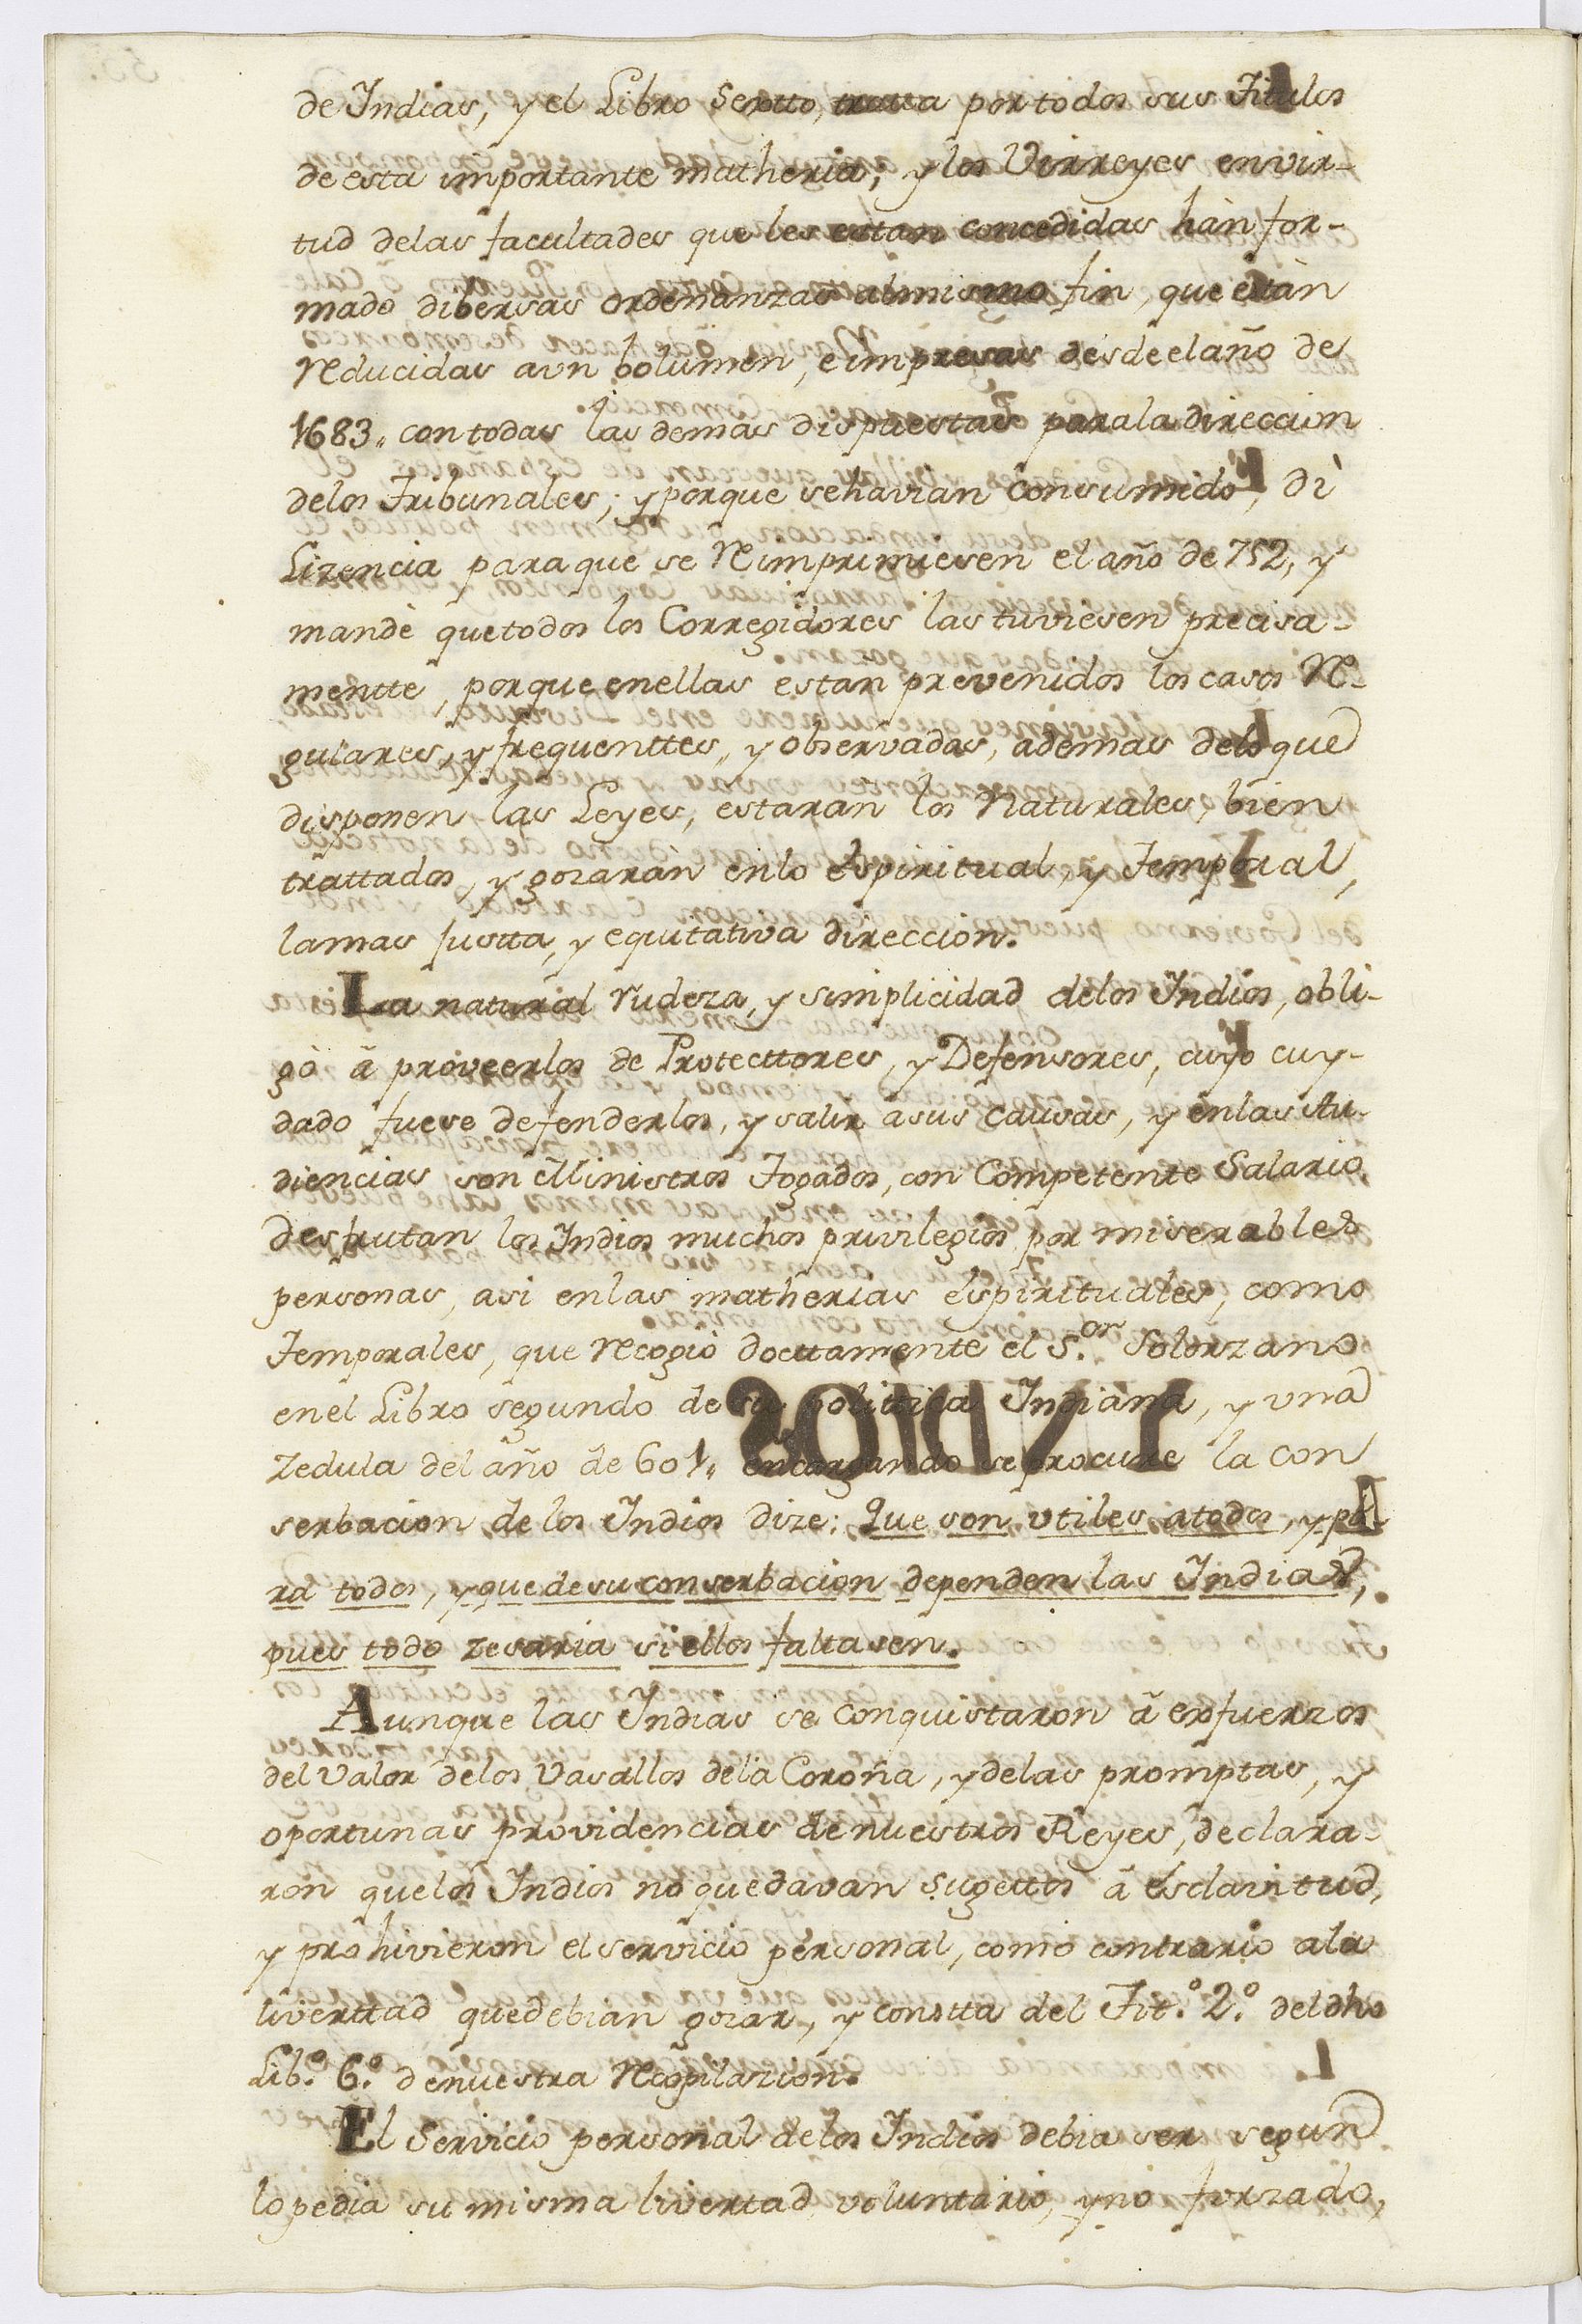 de Indias, y el Libro Sextto, tratta por todos sus Titulos
de esta importante matheria; y los Virreyes en vir-
tud delas facultades que les estan concedidas hàn for-
mado dibersas ordenanzas almismo fin, que estàn
reducidas aun bolumen, e impresas desde el año de
1683,, con todas las demas dispuestas para la direccion
delos Tribunales; y porque sehavian consumido, dì
Lizencia para que se reimprimiesen el año de 752, y
mandè que todos los Corregidores las tuviesen precisa-
mentte, porque enellas estan prevenidos los casos re-
gulares, y frequenttes, y observadas, ademas delo que
disponen las Leyes, estaran los Naturales, bien
trattados, y gozaràn enlo espiritual, y Temporal,
lamas justta, y equitativa direccion.
La natural rudeza, y simplicidad delos Indios, obli-
gò ã proveerlos de Protecttores, y Defensores, cuyo cuy-
dado fuese defenderlos, y salir asus causas, y enlas Au-
diencias son Ministros Togados, con Competente Salario,
desfrutan los Indios muchos privilegios por miserables
personas, asi enlas matherias espirituales, como
Temporales, que recogiò docttamente el S.or Solorzano
enel Libro segundo de su polittica Indiana, y una
Zedula del año de 601,, encargando se procure la con
serbacion de los Indios dize: Que son utiles atodos, y pa-
ra todos, y que de su conserbacion dependen las Indias,
pues todo zesaria si ellos faltasen.
Aunque las Indias se conquistaron ã exfuerzos
del Valor delos Vasallos dela Corona, y delas promptas, y
oportunas providencias de nuestros Reyes, declara-
ron quelos Indios no quedavan sugettos ã esclavitud,
y prohivieron el servicio personal, como contrario ala
liverttad que debian gozar, y constta del Tit.º 2.º deldho
Lib.º 6.º denuestra recopilazion.
El Servicio personal delos Indios debia ser segun
lo pedia su misma livertad voluntario, y no forzado,